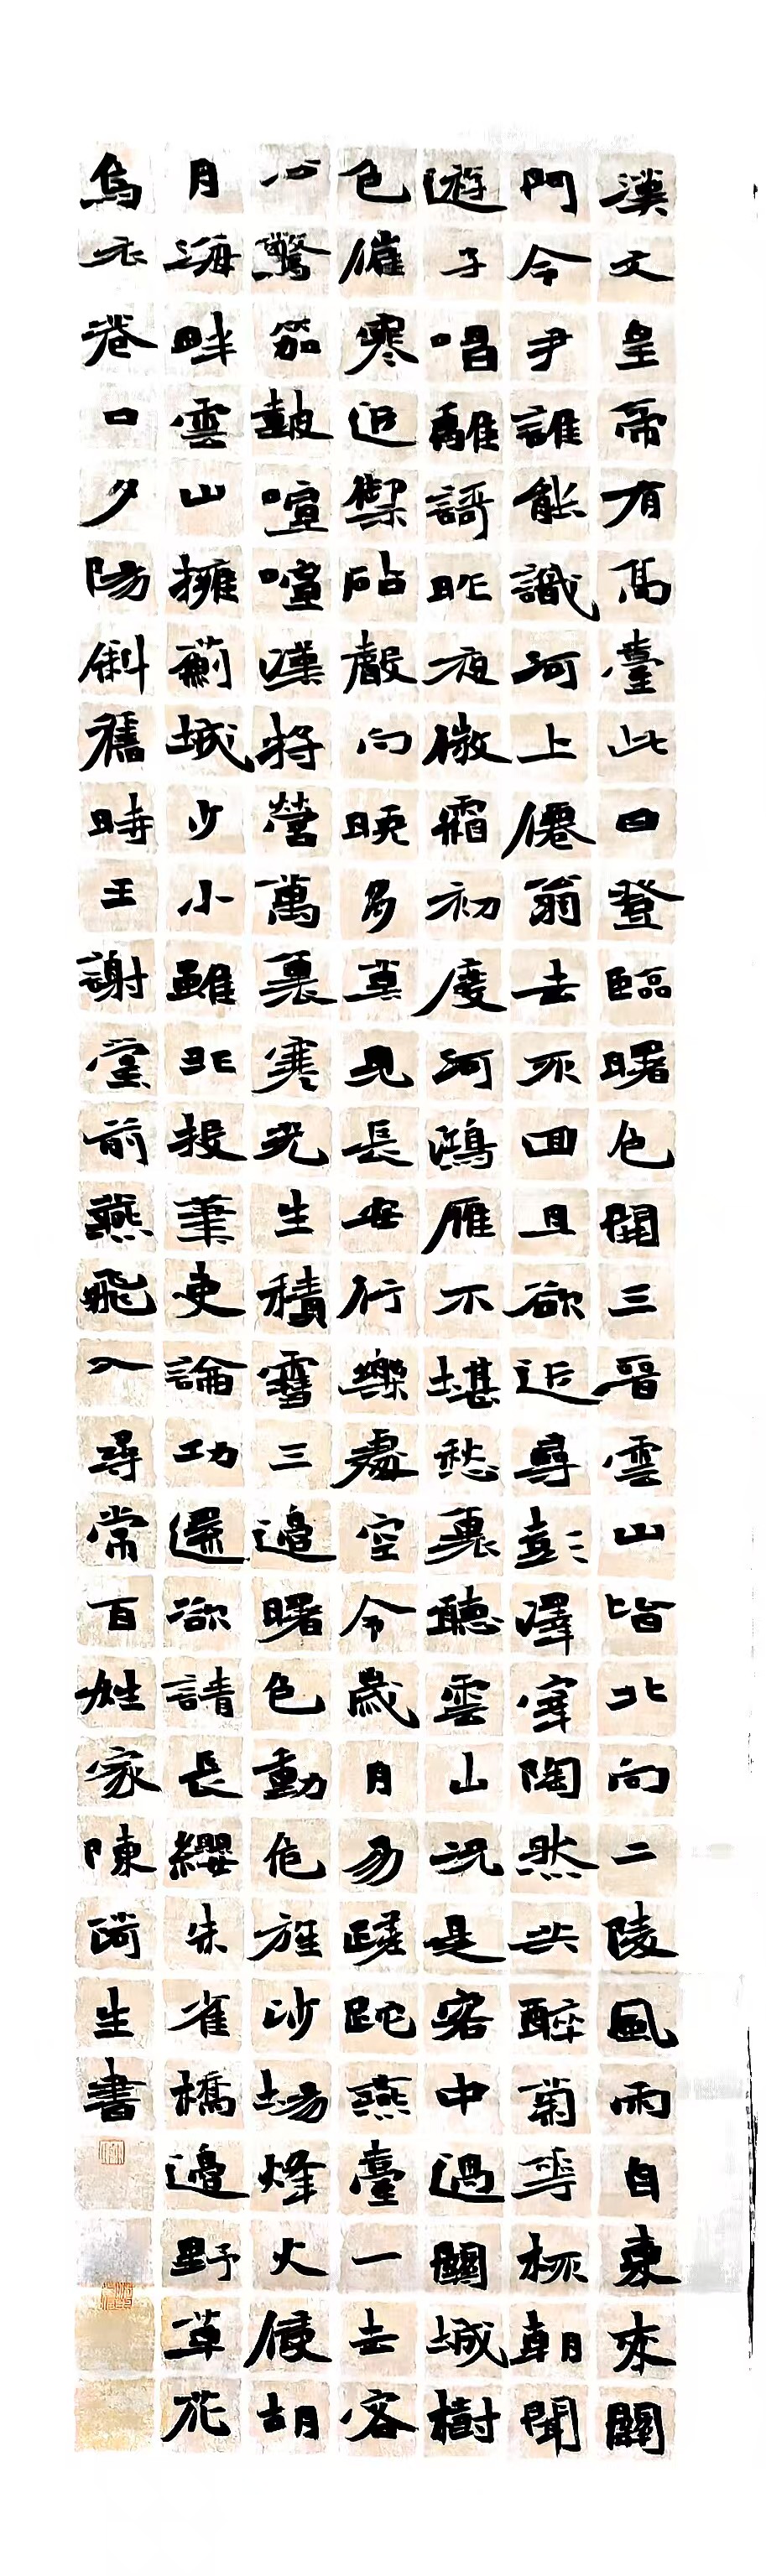 漢文皇帝有高臺此日登臨曙色開三晉雲山皆北向二陵風雨自東來關
門令尹誰能識河上僊翁去不回且欲近尋彭澤宰陶然共醉菊華杯朝聞
遊子唱離謌昨夜微霜初度河鴻雁不堪愁裏聽雲山況是客中過關城樹
色催寒近禦砧聲向晚多莫見長安行樂處空令歲月易蹉跎燕臺一去客
心驚笳鼓喧喧漢將營萬裏寒光生積雪三邊曙色動危旌沙場烽火侵胡
月海畔雲山擁薊城少小雖非投筆吏論功還欲請長纓朱雀橋邊野草花
烏衣巷口夕陽斜舊時王謝堂前燕飛入尋常百姓家陳生書